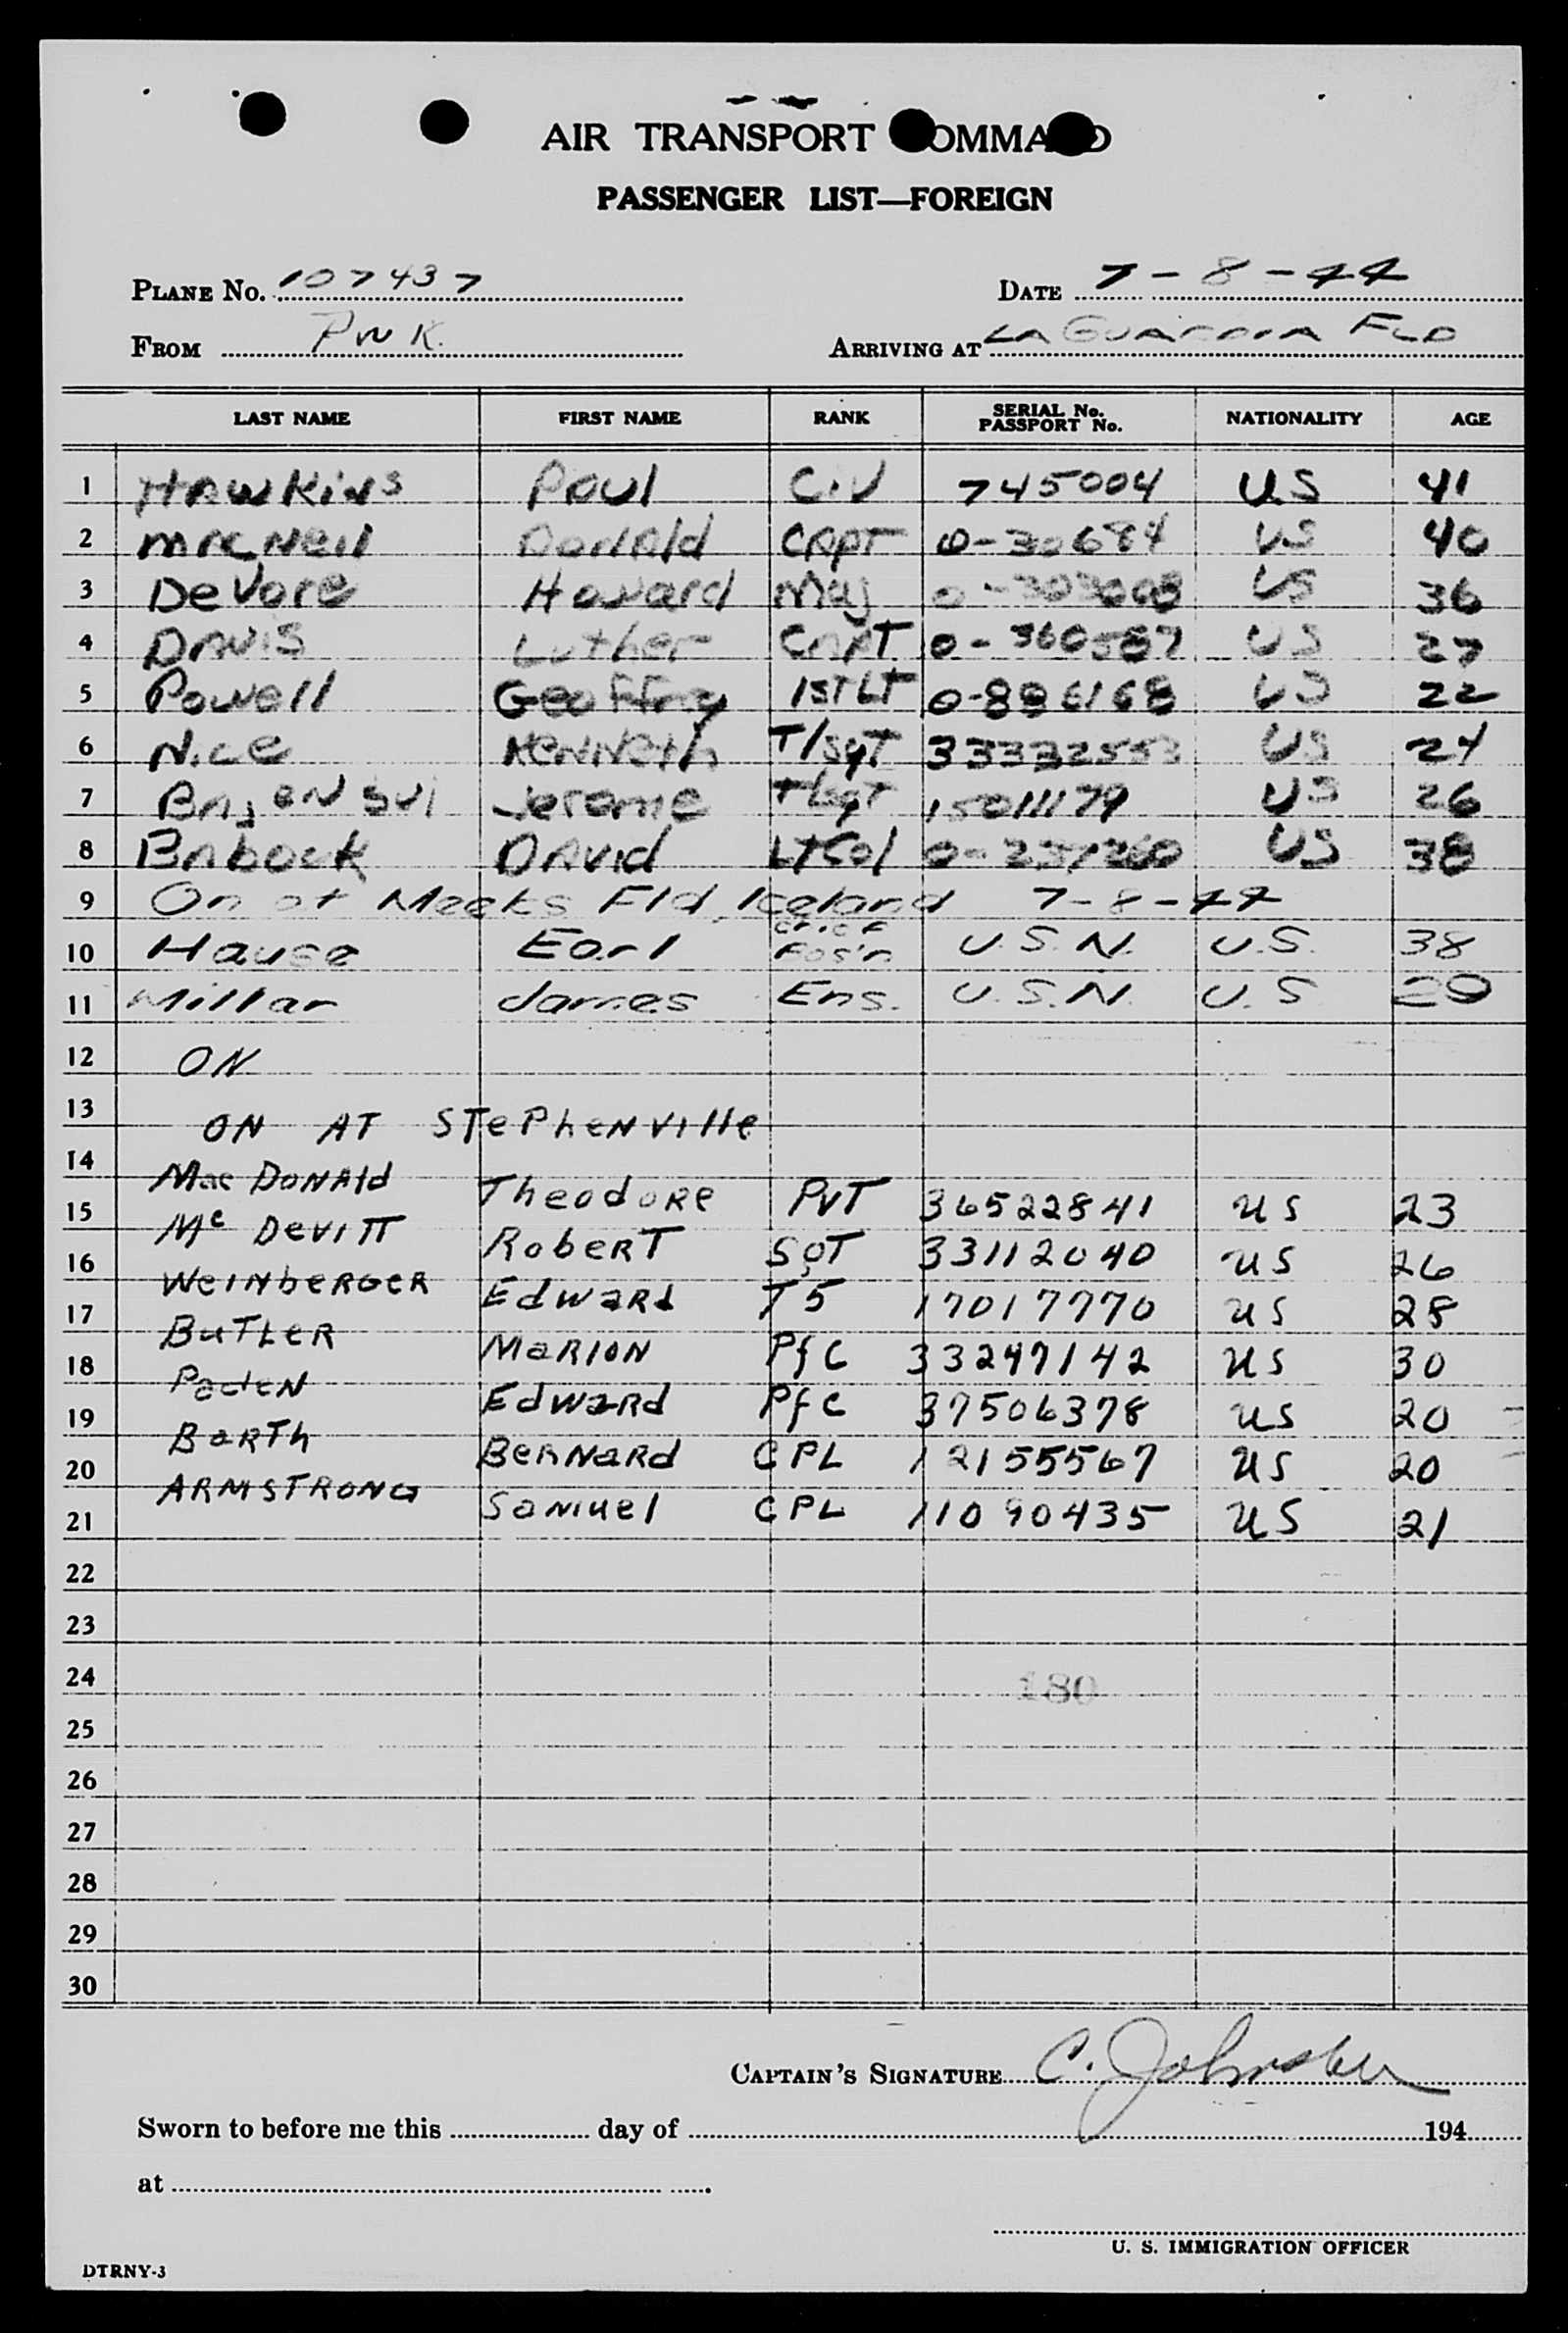 AIR TRANSPORT COMMAND
PASSENGER LIST—FOREIGN
PLANE No. 107437 DATE 7-8-44
FROM PWK. ARRIVING AT LA GUARDIA FLD
LAST NAME FIRST NAME RANK SERIAL No. PASSPORT No. NATIONALITY AGE
1 Hawkins Paul Civ 745004 US 41
2 MacNeil Donald CAPT O-30684 US 40
3 DeVore Howard Maj US 36
4 DAVIS Luther CAPT O-360587 US 27
5 Powell Geoffrey 1ST LT O-886168 US 22
6 Nice Kenneth T/SgT 33332553 US 24
7 Jerome T/SgT 15011179 US 26
8 Babock DAVID LT Col US 38
9 On at Meeks Fld, Iceland 7-8-44
10 Hause Earl Chief U.S.N. U.S. 38
11 Millar James Ens. U.S.N. U.S 29
12 ON
13 ON AT STePhenville
14 Mac DONAld Theodore PVT 36522841 US 23
15 Mc DeviTT RobeRT SgT 33112040 US 26
16 WeinbeRGeR Edward T5 17017770 US 28
17 BuTLeR MaRION Pfc 33247142 US 30
18 PadeN EdwaRd Pfc 37506378 US 20
19 BaRTh BeRNaRd CPL 12155567 US 20
20 ARMSTRONG Samuel CPL 11090435 US 21
21
22
23
24 180
25
26
27
28
29
30
CAPTAIN'S SIGNATURE C. Johnston
Sworn to before me this day of 194
at
U. S. IMMIGRATION OFFICER
DTRNY-3